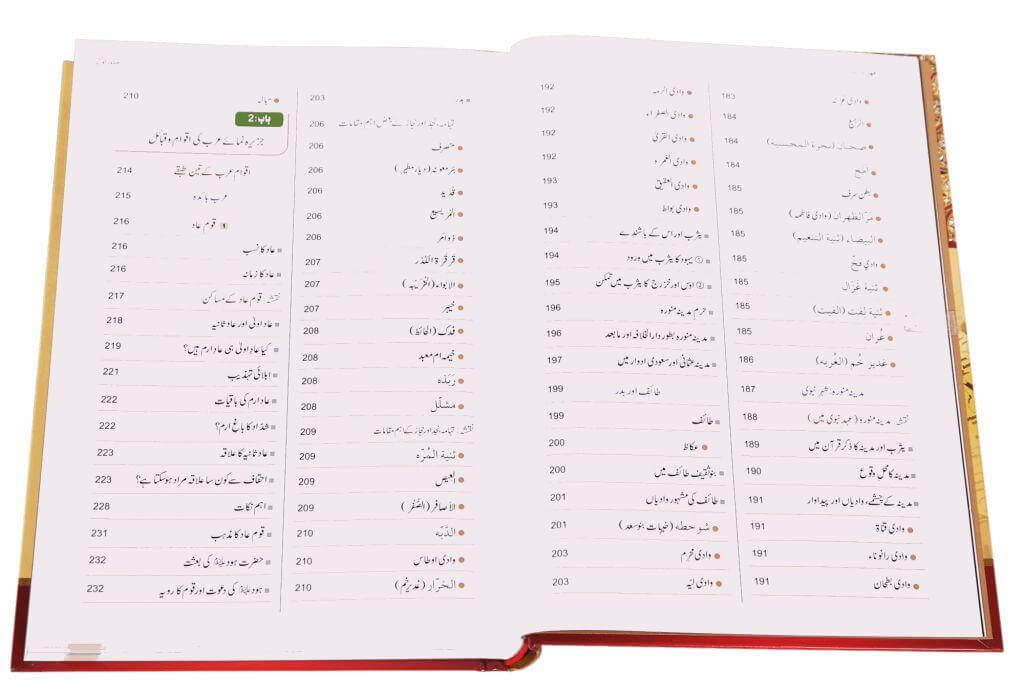 وادی عرنہ 183
الرجیع 184
ضجنان (بحرة المجسية) 184
امج 184
بطن سرف 185
مرّ الظہران (وادی فاطمہ) 185
البيضاء (ثنية التنعيم) 185
وادي فخّ 185
ثنية غزال 185
ثنية لِفت (الفيت) 185
غُران 185
غدیر خُم (الغُربه) 186
مدینہ منورہ، شہر نبوی 187
نقشہ مدینہ منورہ (عہد نبوی میں) 188
یثرب اور مدینہ کا ذکر قرآن میں 189
مدینہ کا محل وقوع 190
مدینہ کے چشمے، وادیاں اور پیداوار 191
وادی قناۃ 191
وادی رانوناء 191
وادی بطحان 191
وادی الرمہ 192
وادی الصفراء 192
وادی القریٰ 192
وادی العمرہ 192
وادی العقیق 193
وادی بواط 193
یثرب اور اس کے باشندے 194
① یہود کا یثرب میں ورود 194
② اوس اور خزرج کا یثرب میں تمکن 195
حرم مدینہ منورہ 196
مدینہ منورہ بطور دارالخلافہ اور مابعد 196
مدینہ عثمانی اور سعودی ادوار میں 197
طائف اور بدر 199
طائف 199
عکاظ 200
بنو ثقیف طائف میں 200
طائف کی مشہور وادیاں 201
شوحطہ (ضیبات بنو سعد) 201
وادی مخرم 203
وادی لیہ 203
بدر 203
تہامہ، نجد اور حجاز کے بعض اہم مقامات 206
منصرف 206
بئر معونہ (دیار مطیر) 206
قُدَید 206
المریسیع 206
ذو امر 206
قَرقَرة الكُدْر 207
الابواء (الخُرَيبه) 207
خیبر 207
فدک (الحائط) 208
خیمہ ام معبد 208
رَبَذه 208
مشلّل 208
نقشہ: تہامہ، نجد اور حجاز کے اہم مقامات 209
ثنية المُرّه 209
العیص 209
الأصافر (الصُّفُر) 209
الدَّبّه 210
وادی اوطاس 210
الخرّار (غدیر خم) 210
مبانہ 210
باب: 2
جزیرہ نمائے عرب کی اقوام و قبائل
اقوام عرب کے تین طبقے 214
عرب بائدہ 215
1 قوم عاد 216
عاد کا نسب 216
عاد کا زمانہ 216
نقشہ: قوم عاد کے مساکن 217
عاد اولیٰ اور عاد ثانیہ 218
کیا عاد اولیٰ ہی عاد ارم ہیں؟ 219
ابلائی تہذیب 221
عاد ارم کی باقیات 222
شداد کا باغ ارم؟ 222
عاد ثانیہ کا علاقہ 223
احقاف سے کون سا علاقہ مراد ہو سکتا ہے؟ 223
اہم نکات 228
قوم عاد کا مذہب 231
حضرت ہود علیہ السلام کی بعثت 232
ہود علیہ السلام کی دعوت اور قوم کا رویہ 232